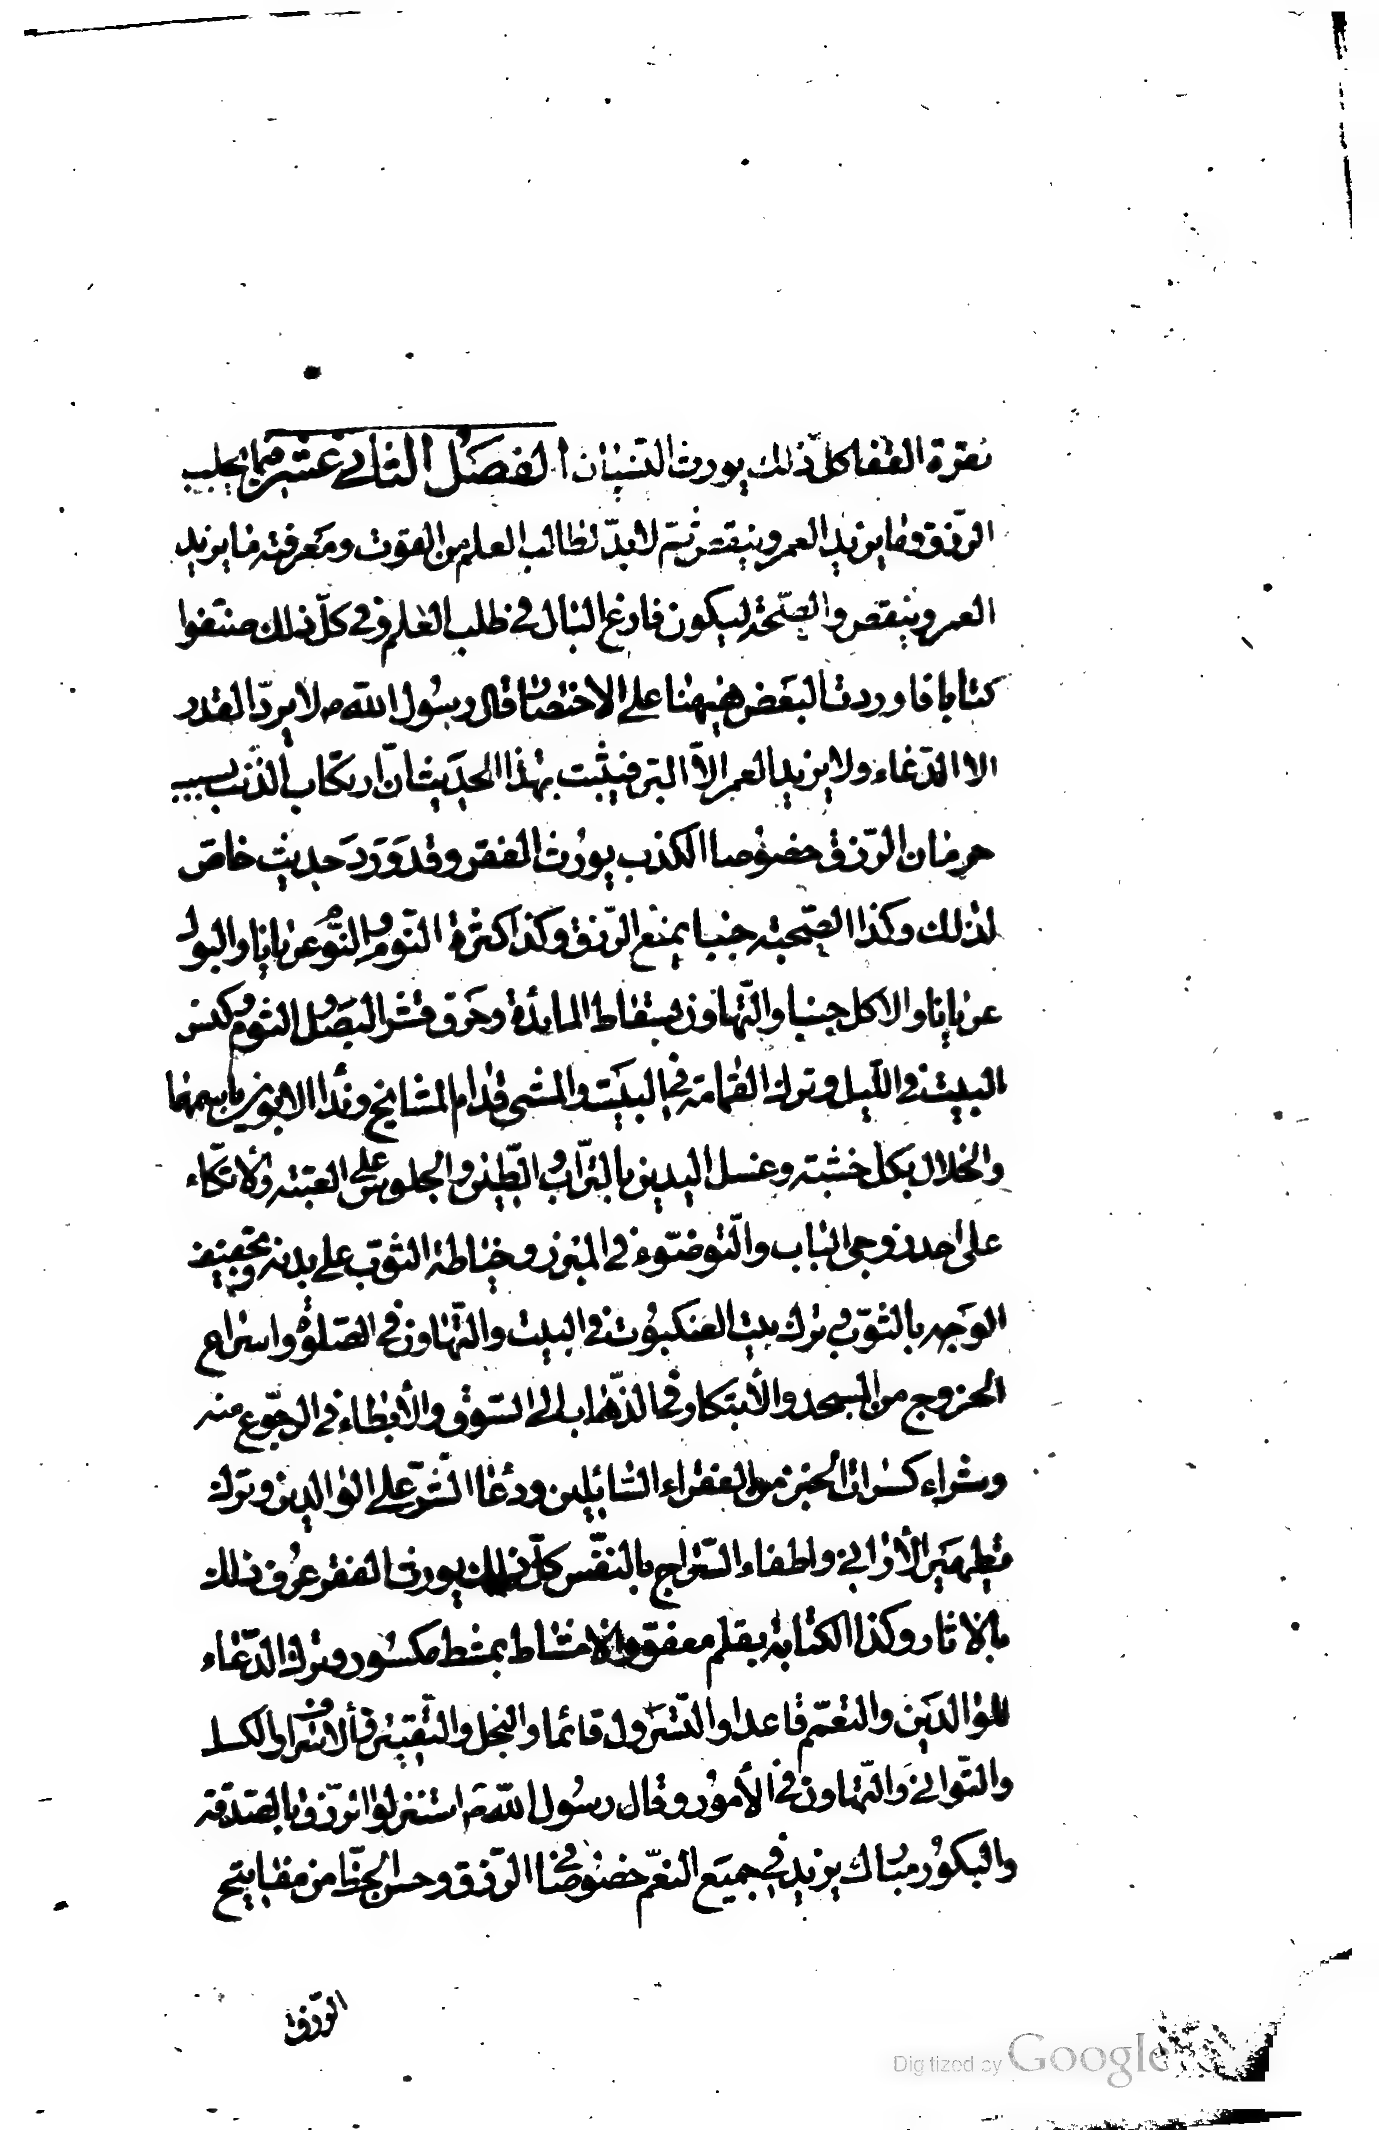 نقرة القفا كلّ ذلك يورث النسيان الفصل الثانى عشر فيما يجلب
الرّزق وما يزيد العمر وينقص ثمّ لا بدّ لطالب العلم من القوت ومعرفته ما يزيد
العمر وينقص والصّحّة ليكون فارغ البال فى طلب العلم وفى كلّ ذلك صنّفوا
كتابا فاوردت البعض هيهنا على الاختصار قال رسول اللّه ص لا يردّ القدر
الا الدّعاء ولا يزيد العمر الاّ البر فيثبت بهذا الحديث انّ ارتكاب الذّنب بسبب
حرمان الرّزق خصوصا الكذب يورث الفقر وقد وَرَدَ حديث خاصّ
لذلك وكذا الصّحبته جنبا يمنع الرّزق وكذا كثرة النّوم والنّوم عريانا والبول
عريانا والاكل جنبا والتّهاون بسقاط المائدة وحرق قشر البصل والثوم وكنس
البيت فى اللّيل وترك القمامة فى البيت والمشى قدام المشايخ وندا الابوين باسمهما
والخلال بكل خشبته وغسل اليدين بالتّراب والطّين والجلوس على العتبته والاتكّاء
على احد زوجى الباب والتّوضّوء فى المبرز وخياطة الثّوب على بدنه وتجفيف
الوجه بالثّوب وترك بيت العنكبوت فى البيت والتّهاون فى الصّلوة واسراع
الخروج من المسجد والأبتكار فى الذّهاب الى السّوق والأبطاء فى الرجوع منه
وشراء كسرات الخبز من الفقراء السّايلين ودعاا الشّرّ على الوالدين وترك
تطهير الأوانى واطفاء السّراج بالنّفس كلّ ذلك يورث الفقر عرف ذلك
بالاثار وكذا الكتابة بقلم معقود والامتشاط بمشط مكسور وترك الدّعاء
للوالدين والتعمّم قاعدا والتّسرول قائما والبخل والتّقتير والأسراف والكسل
والتّوانى والتّهاون فى الأمور وقال رسول اللّه ص استنزلوا الرّزق بالصّدقة
والبكور مبارك يزيد فى جميع النعم خصوصا فى الرّزق وحسن الخطّ من مفاتيح
الرّزق
Digitized by Google